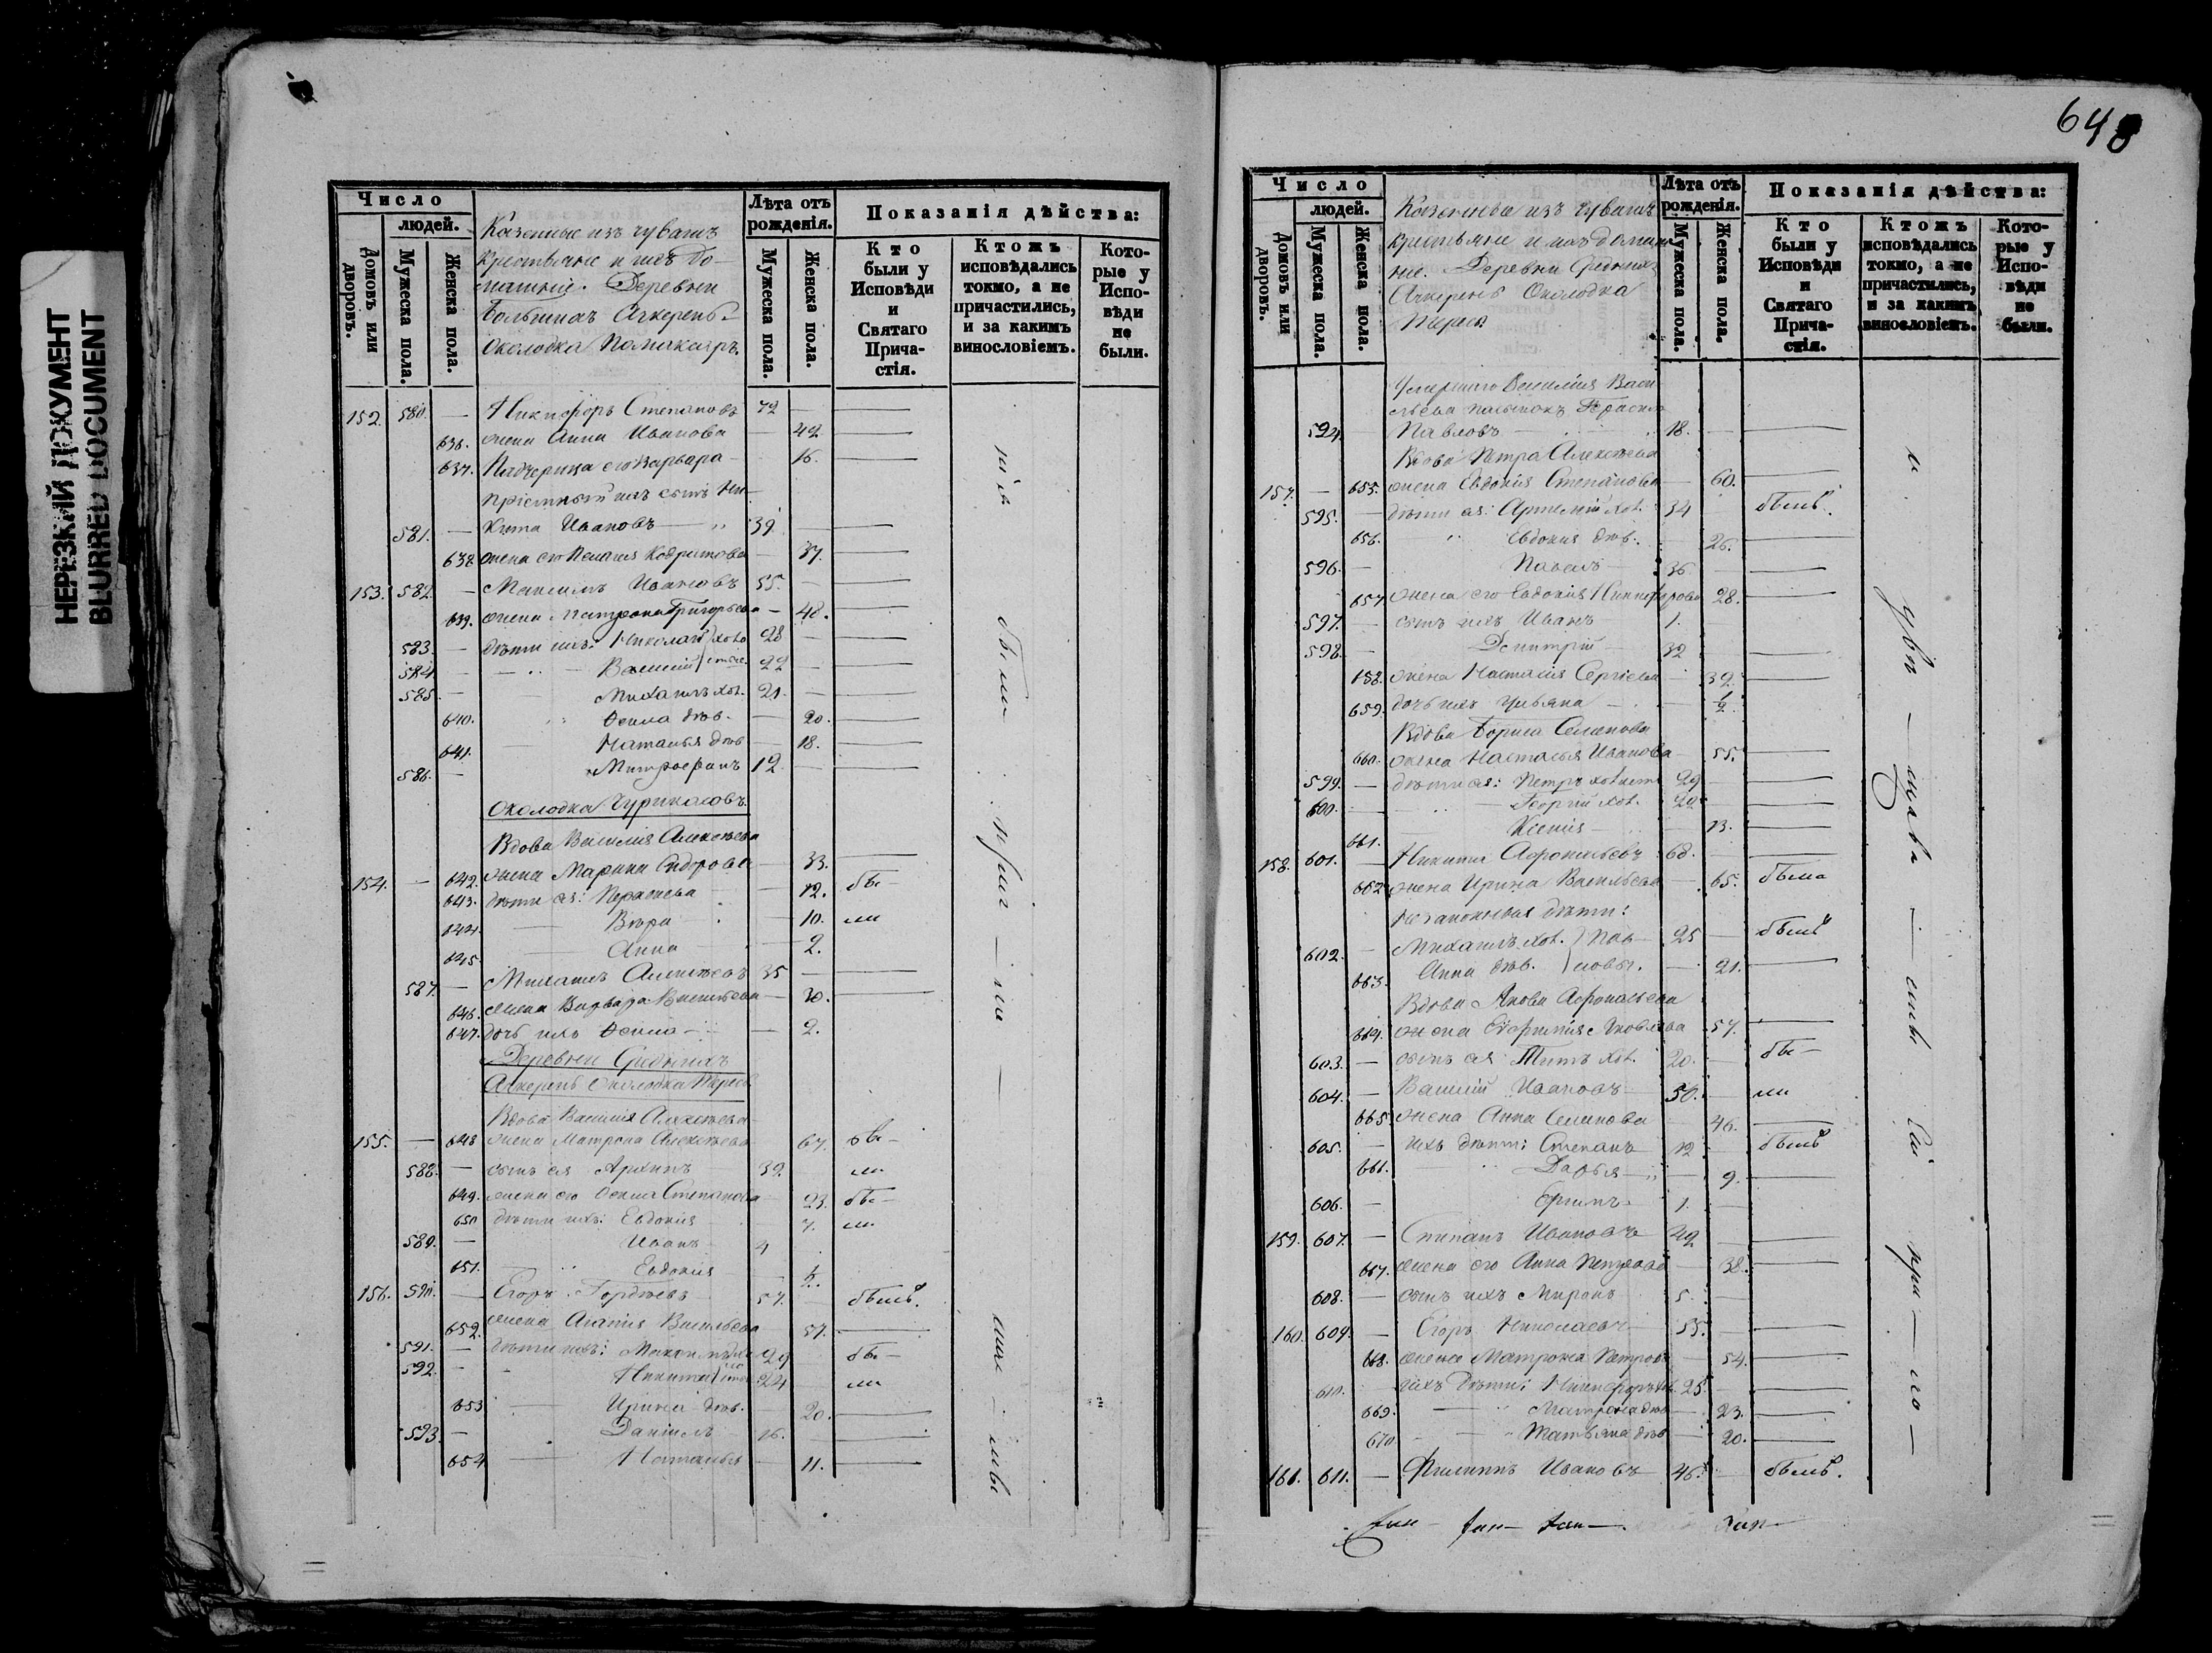 НЕРЕЗКИЙ ДОКУМЕНТ
BLURRED DOCUMENT
Число
людей.
Домовъ или дворовъ.
Мужеска пола.
Женска пола.
Казенные изъ чувашъ
крестьяне и ихъ до-
машніе. Деревни
Большихъ Ачкеренъ
Околодка
Лѣта отъ рожденія.
Мужеска пола.
Женска пола.
Показанія дѣйства:
Кто были у Исповѣди и Святаго Причастія.
Ктожъ исповѣдались токмо, а не причастились, и за какимъ винословіемъ.
Которые у Исповѣди не были.
152. 580. — Никифоръ Степановъ 72 —
636. жена Анна Иванова — 42
637. Падчерица его Варвара — 16.
Пріемный ихъ сынъ Ни-
581. — кита Ивановъ — 39.
638. жена его Пелагія — 37.
153. 582. — Максимъ Ивановъ 55. —
639. жена Матрона Григорьева — 48.
583. — дѣти ихъ: Николай холо 28 —
584. — Василій стые. 22 —
585. — Михаилъ хол. 21. —
640. дѣв. — 20.
641. Наталья дѣв — 18.
586. — Митрофанъ 12 —
Околодка Чурикасовъ.
Вдова Василія Алексѣева
154. — 642. жена Марина Сидорова — 33.
643. дѣти ея: — 12. бы-
644. Вѣра — 10. ли
645. Анна — 2.
587. — Михаилъ Алексѣевъ 35 —
646. жена Варвара Васильева — 30.
647. дочь ихъ — 2.
Деревни Среднихъ
Ачкеренъ Околодка
Вдова Василія Алексѣева
155. — 648 жена Матрона Алексѣева 67. бы-
588. — сынъ ея Архипъ 32. ли
649. жена его Степанова 23. бы-
650 дѣти ихъ: Евдокія 7. ли
589. — Иванъ 4
651. Евдокія
156. 590. — Егоръ Гордѣевъ 57. — былъ.
652. жена Агапія Васильева 57.
591. — дѣти ихъ: 29 бы-
592. — Никита 24 ли
653. Ирина дѣв. — 20.
593. — Даніилъ 16.
654 Наталья — 11.
648
Число
людей.
Домовъ или дворовъ.
Мужеска пола.
Женска пола.
Казенные изъ чувашъ
крестьяне и ихъ домаш-
ніе. Деревни Среднихъ
Ачкеренъ Околодка
Лѣта отъ рожденія.
Мужеска пола.
Женска пола.
Показанія дѣйства:
Кто были у Исповѣди и Святаго Причастія.
Ктожъ исповѣдались токмо, а не причастились, и за какимъ винословіемъ.
Которые у Исповѣди не были.
Умершаго Василія Васи-
льева пасынокъ
594. — Павловъ 18. —
Вдова Петра Алексѣева
157. — 655. жена Евдокія Степанова — 60.
595. — дѣти ея: хол. 34 былъ.
656. Евдокія дѣв. 26.
596. — Павелъ 36
657 жена его Евдокія Никифорова 28.
597. — сынъ ихъ Иванъ 1.
598. — Димитрій 32
158. жена Настасія Сергіева — 32.
659. дочь ихъ Ульяна — 1/2.
Вдова Бориса Семенова
660. жена Настасья Иванова 55.
599. — дѣти ея: Петръ 29 —
600. — Георгій хол. 22
661. Ксенія — 13.
158. 601. — Никита 68. —
662 жена Ирина Васильева — 65. была
Незаконныя дѣти:
602. — Михаилъ хол. 25 — былъ
663. Анна дѣв. — 21.
Вдова Якова
664. жена Яковлева 57.
603. — сынъ ея Титъ хол. 20. — бы-
604. — Василій Ивановъ 50. — ли
665 жена Анна Семенова 46.
605. — ихъ дѣти: Степанъ 12 былъ
666. Дарья — 9.
606. — 1. —
159. 607. — Степанъ Ивановъ 42
667. жена его Анна Петрова — 38.
608. — сынъ ихъ Миронъ 5. —
160. 609. — Егоръ Николаевъ 55. —
668. жена Матрона Петрова — 54.
610. ихъ дѣти: Никифоръ хол. 25.
669. Матрона дѣв — 23.
670 Татьяна дѣв — 20.
161. 611. — Филиппъ Ивановъ 46. — былъ.